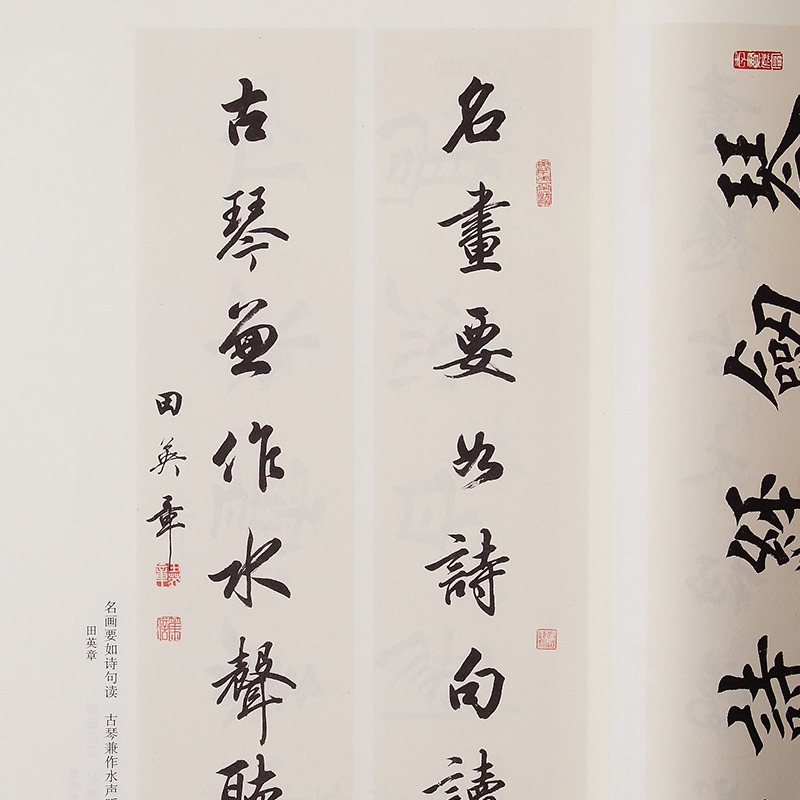 名畫要如詩句讀
古琴兼作水聲聽
田英章
名画要如诗句读 古琴兼作水声
田英章
琴
劍
詩